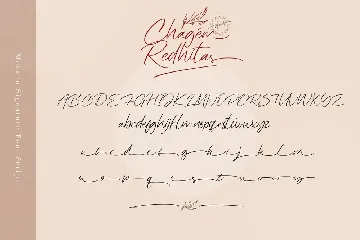 Modern Signature Font Script
Chagen
Redhitas
ABCDEFGHIJKLMNOPQRSTUVWXYZ
abcdefghijklmnopqrstuvwxyz
a b c d e f g h i j k l m
n o p q r s t u v w x y z